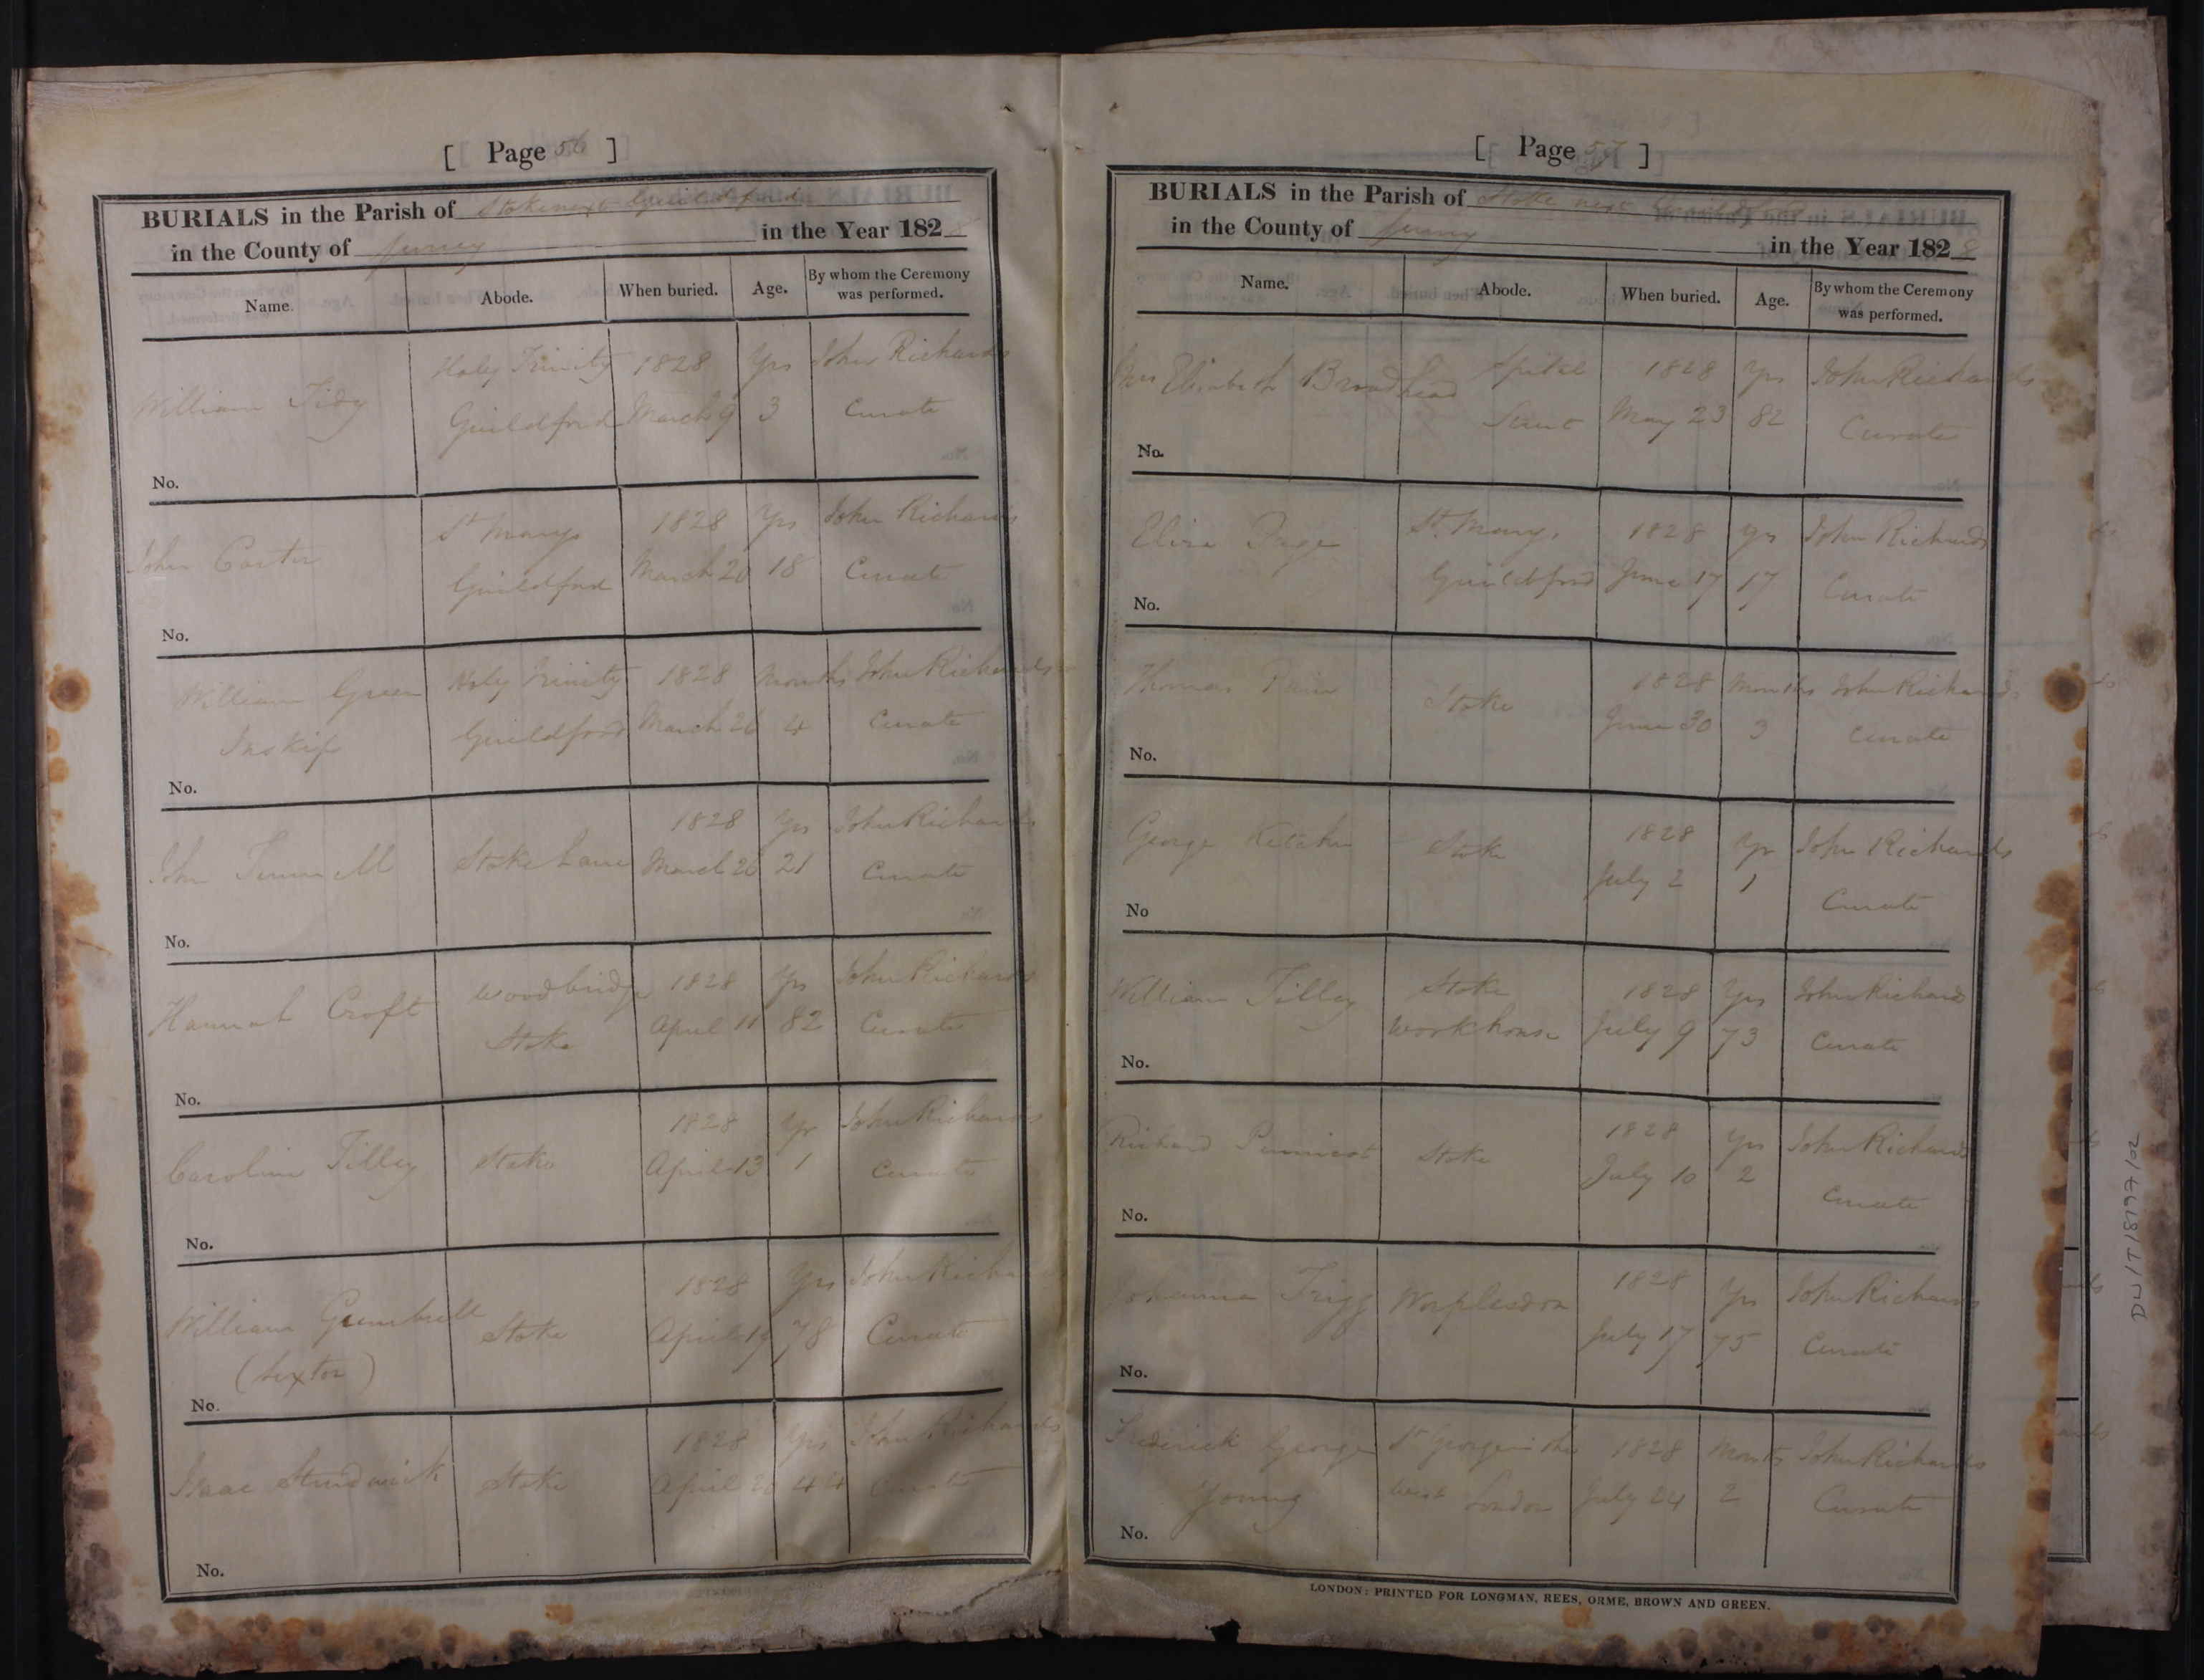 [ Page 56 ]
BURIALS in the Parish of Stoke next Guildford
in the County of Surrey in the Year 1828
Name. Abode. When buried. Age. By whom the Ceremony was performed.
William Tidy Holy Trinity Guildford 1828 March 9 Yrs 3 John Richards Curate
No.
John Carter St Marys Guildford 1828 March 20 Yrs 18 John Richards Curate
No.
William Green Inskip Holy Trinity Guildford 1828 March 26 Months 4 John Richards Curate
No.
John Stoke Lane 1828 March 26 Yrs 21 John Richards Curate
No.
Hannah Croft Woodbridge Stoke 1828 April 11 Yrs 82 John Richards Curate
No.
Caroline Tilley Stoke 1828 April 13 Yr 1 John Richards Curate
No.
William Grumbrell (Sexton) Stoke 1828 April 19 Yrs 78 John Richards Curate
No.
Isaac Studwick Stoke 1828 April 20 Yrs 44 John Richards Curate
No.
[ Page 57 ]
BURIALS in the Parish of Stoke next Guildford
in the County of Surrey in the Year 1828
Name. Abode. When buried. Age. By whom the Ceremony was performed.
Mrs Elizabeth Broadhead Spital Street 1828 May 23 Yrs 82 John Richards Curate
No.
Eliza Page St. Marys Guildford 1828 June 17 Yrs 17 John Richards Curate
No.
Thomas Stoke 1828 June 30 Months 3 John Richards Curate
No.
George Stoke 1828 July 2 Yr 1 John Richards Curate
No
William Tilley Stoke Workhouse 1828 July 9 Yrs 73 John Richards Curate
No.
Richard Stoke 1828 July 10 Yrs 2 John Richards Curate
No.
Johanna Trigg Worplesdon 1828 July 17 Yrs 75 John Richards Curate
No.
Frederick George Young St George in the West London 1828 July 24 Months 2 John Richards Curate
No.
LONDON: PRINTED FOR LONGMAN, REES, ORME, BROWN AND GREEN.